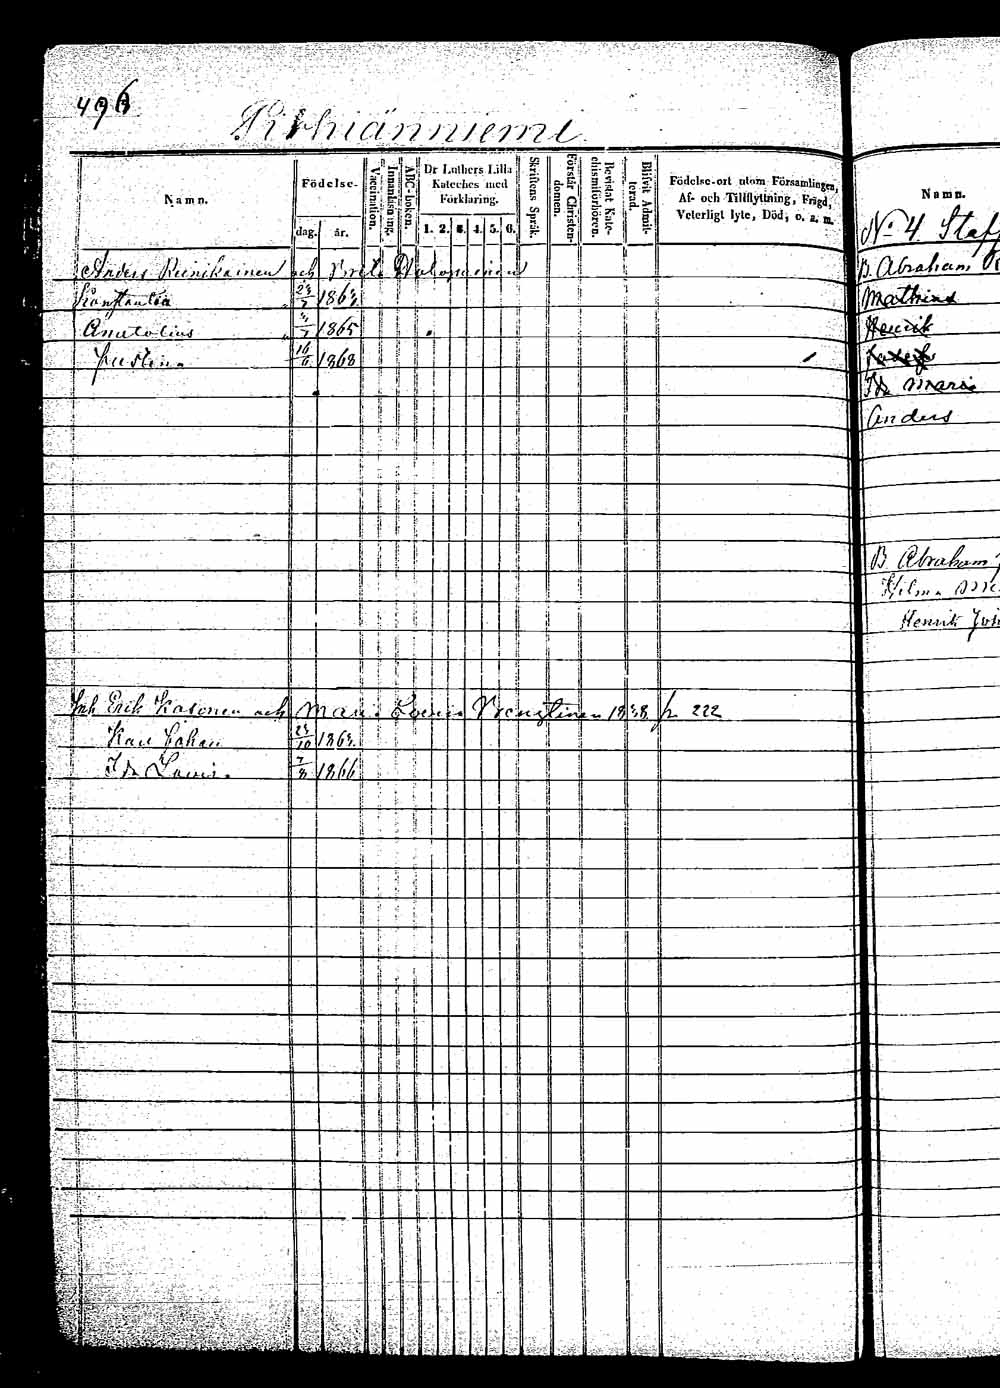 496
Namn.
Födelse-
dag.
år.
Vaccination.
Innanläsning.
ABC-boken.
Dr Luthers Lilla
Kateches med
Förklaring.
1. 2. 3. 4. 5. 6.
Skriftens Språk.
Förstår Christen-
domen.
Bevistat Kate-
chismiförhören.
Blifvit Admit-
terad.
Födelse-ort utom Församlingen,
Af- och Tillflyttning, Frägd,
Veterligt lyte, Död, o. s. m.
Anders Reinikainen och Brita
Konstantin 1863
Anatolius 1865
Justina 16/6 1868
Inh Erik Kasonen och Maria Lovisa 1838 p. 222
Johan 1863
Ida Lovisa 7/8 1866
Namn.
No 4. Staf
B. Abraham
Mathias
Henrik
Josef
Ida Maria
Anders
B Abraham
Hilma
Henrik